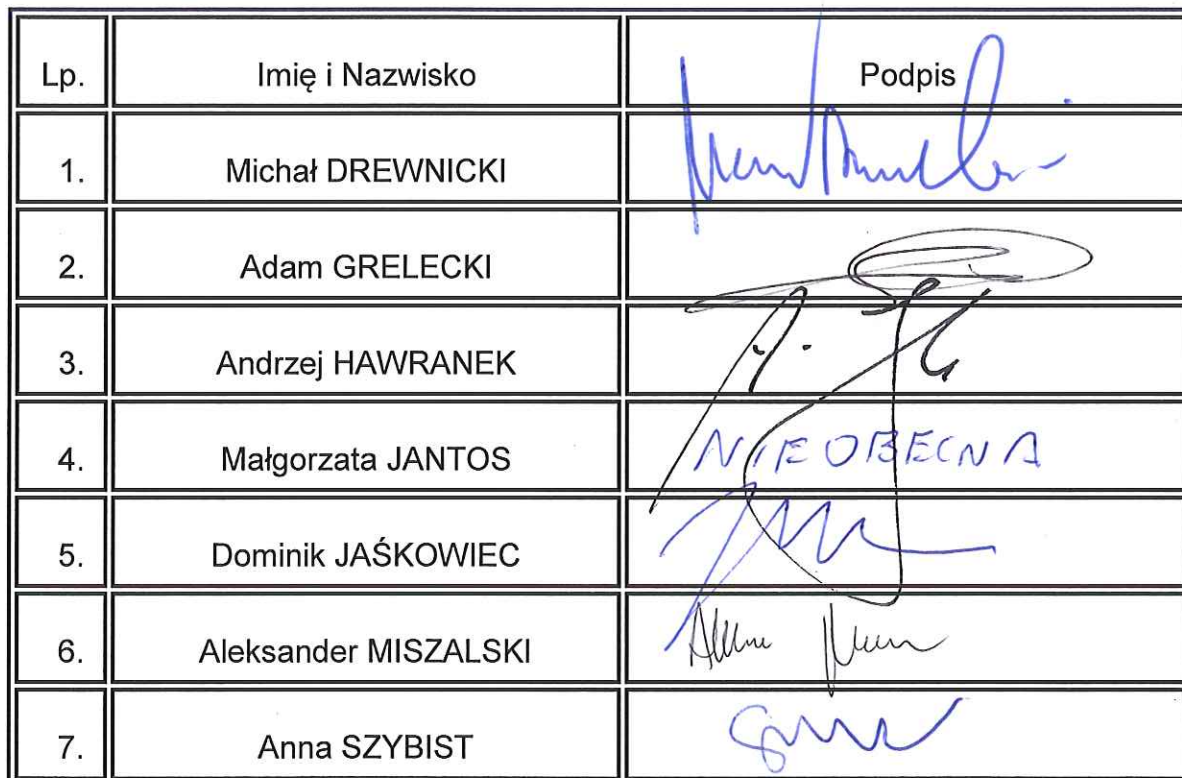 Lp. Imię i Nazwisko Podpis
1. Michał DREWNICKI
2. Adam GRELECKI
3. Andrzej HAWRANEK
4. Małgorzata JANTOS NIEOBECNA
5. Dominik JAŚKOWIEC
6. Aleksander MISZALSKI
7. Anna SZYBIST